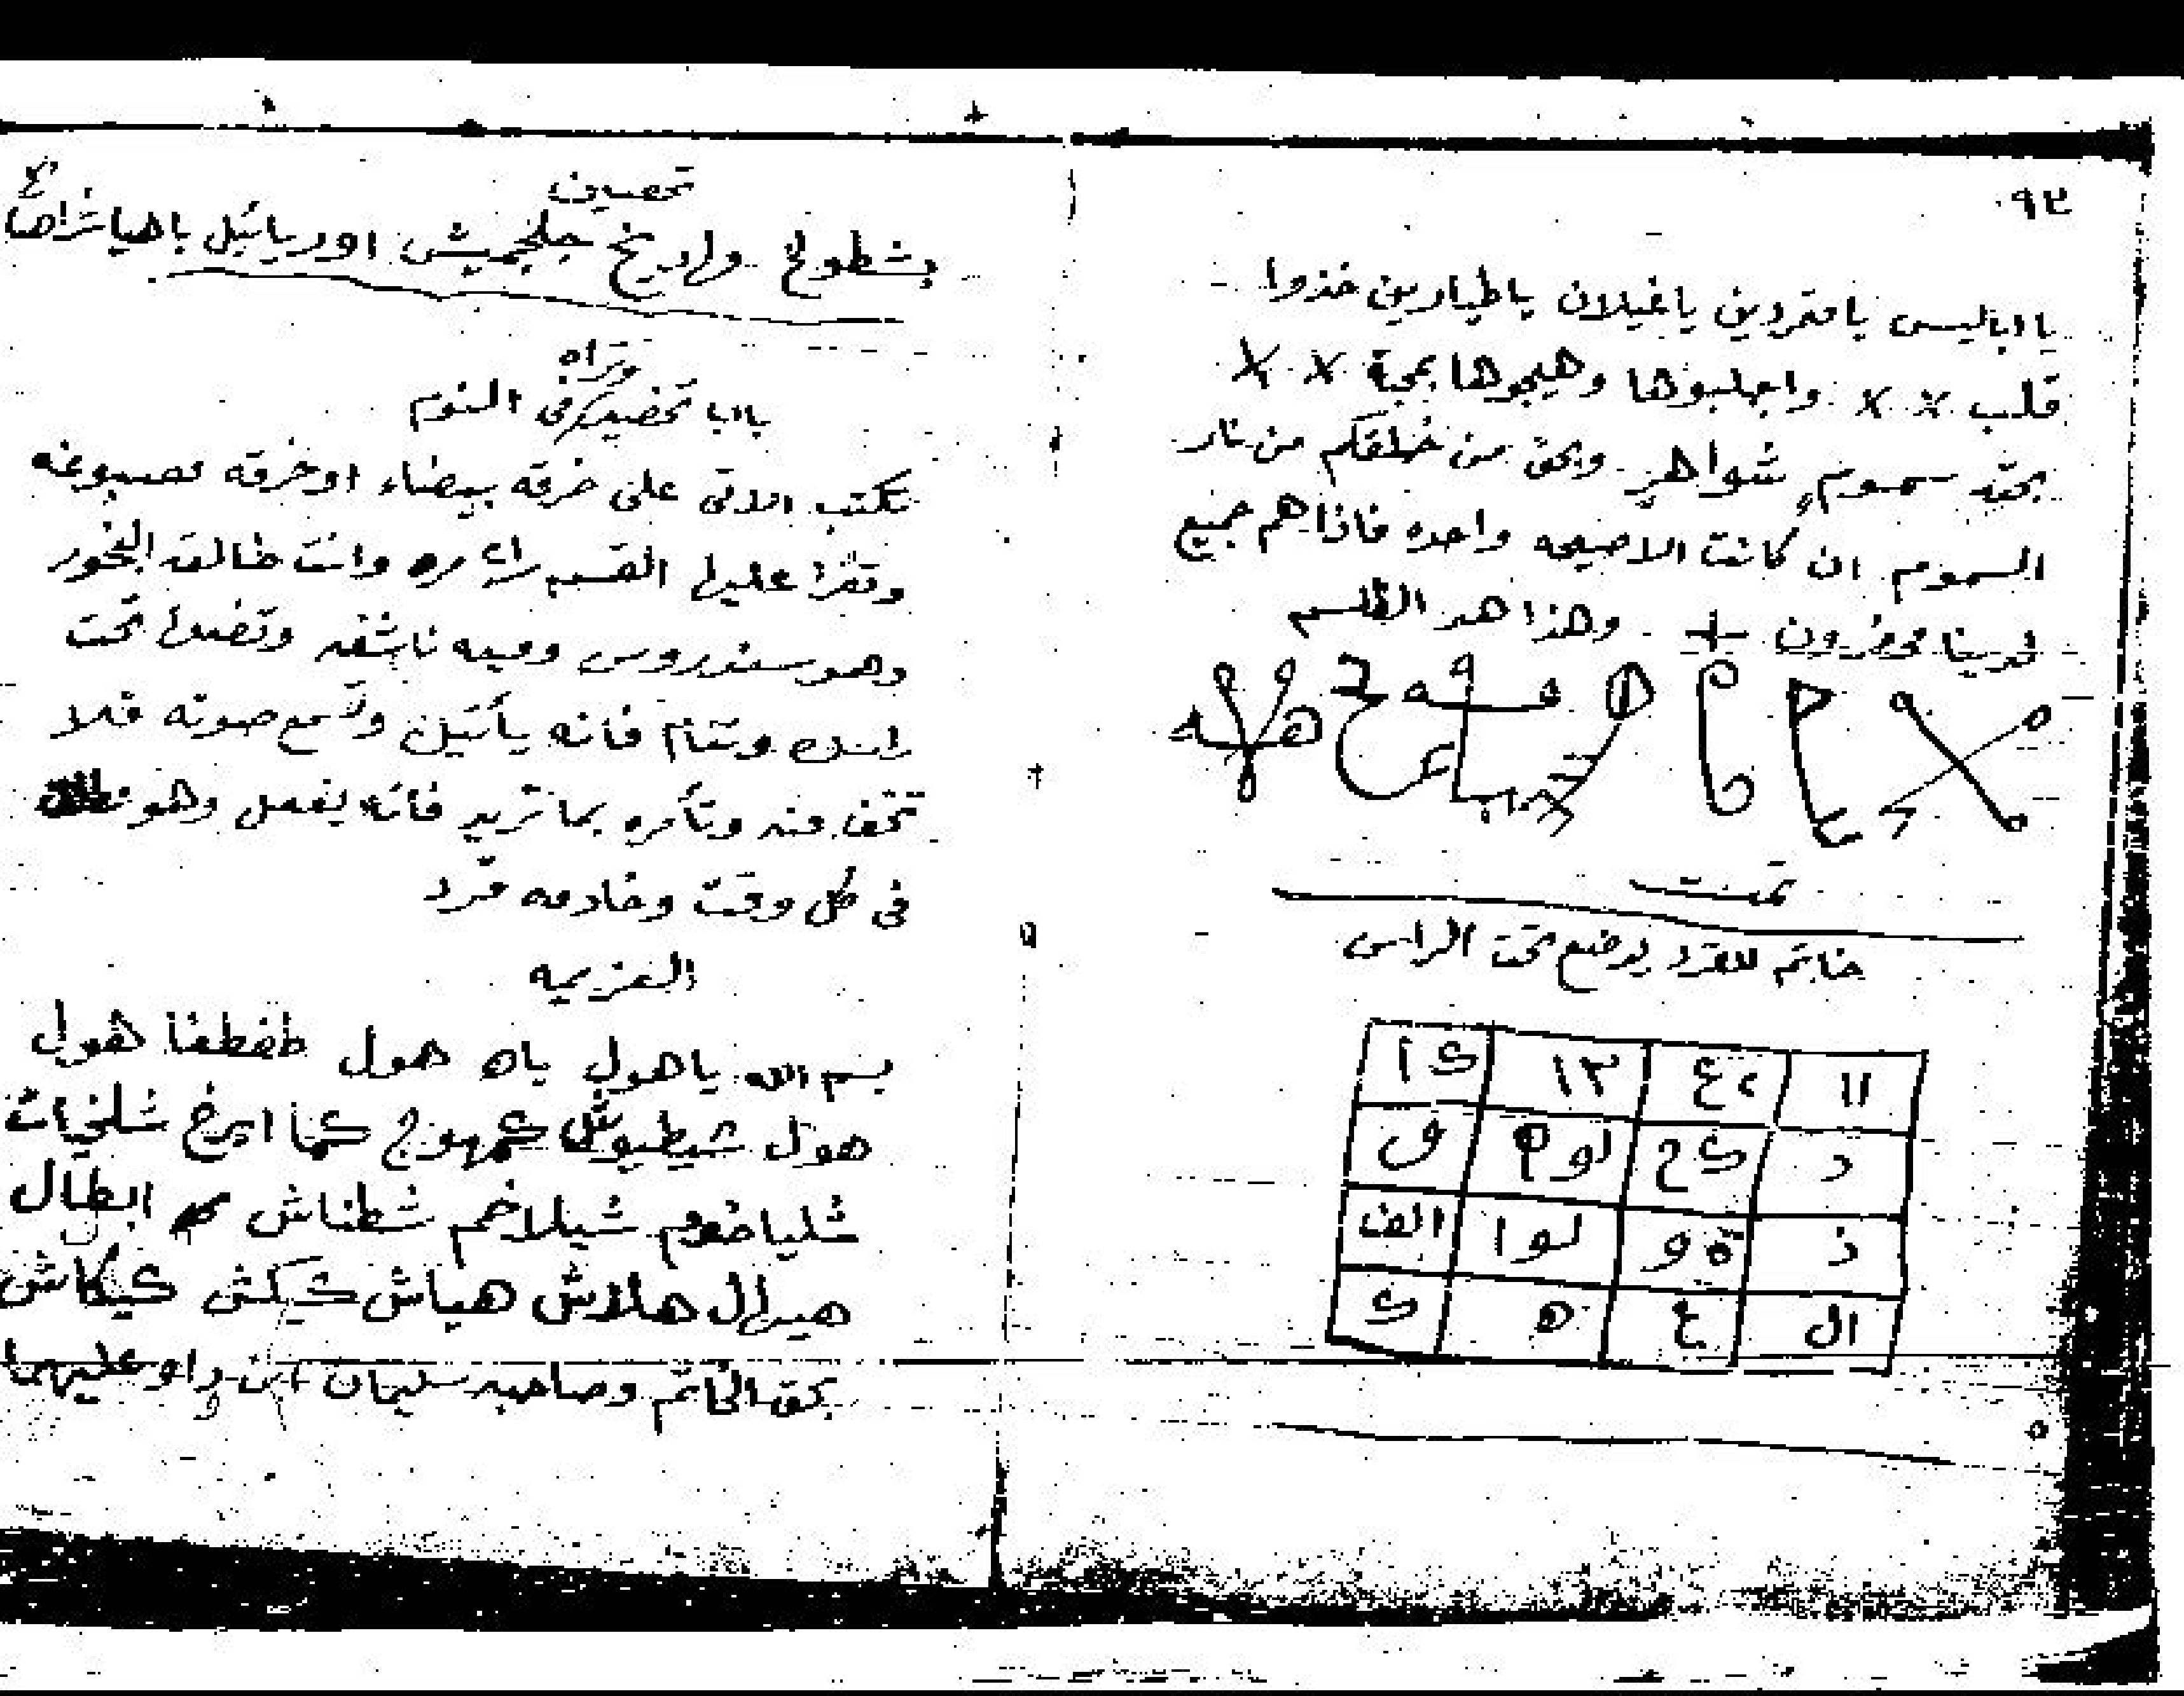 ٩٣
يا اباليس يا متمردين يا غيلان يا طيارين خذوا
قلب × × واجلبوها وهيجوها بمحبة × ×
بحق سموم شواهر وبحق من خلقكم من نار
السموم ان كانت الاصيحه واحده فاذاهم جميع
لدينا محضرون + وهذا هو الطلسم
تمت
خاتم للقرد يوضع تحت الراس
١١ ١٣ ك ا
د ك ح لوم ق
ذ ة و لوا الف
ال ع ه ك
تحصين
بشطوخ جلجميش اوريائيل باهيا شراهيا
باب تحضير في النوم
وتراه
تكتب الاتى على خرقه بيضاء او خرقه مصبوغه
وتقرا عليها القسم مره وانت طالق البخور
وهو سندروس وميعه ناشفه وتضعها تحت
راسك وتنام فانه يأتيك وتسمع صوته فلا
تخف منه وتأمره بما تريد فانه يفعل وهو
فى كل وقت وخادمه قرد
العزيمه
بسم الله ياهول ياه هول طفطفا هول
هول شيطيوئل عمهوج كما ايرغ شلخيات
شلياخوم شيلاخم شطناش ابطال
هيلال هلاش هياش كيكش كيكاش
بحق الخاتم وصاحبه سليمان ابن داو عليهما